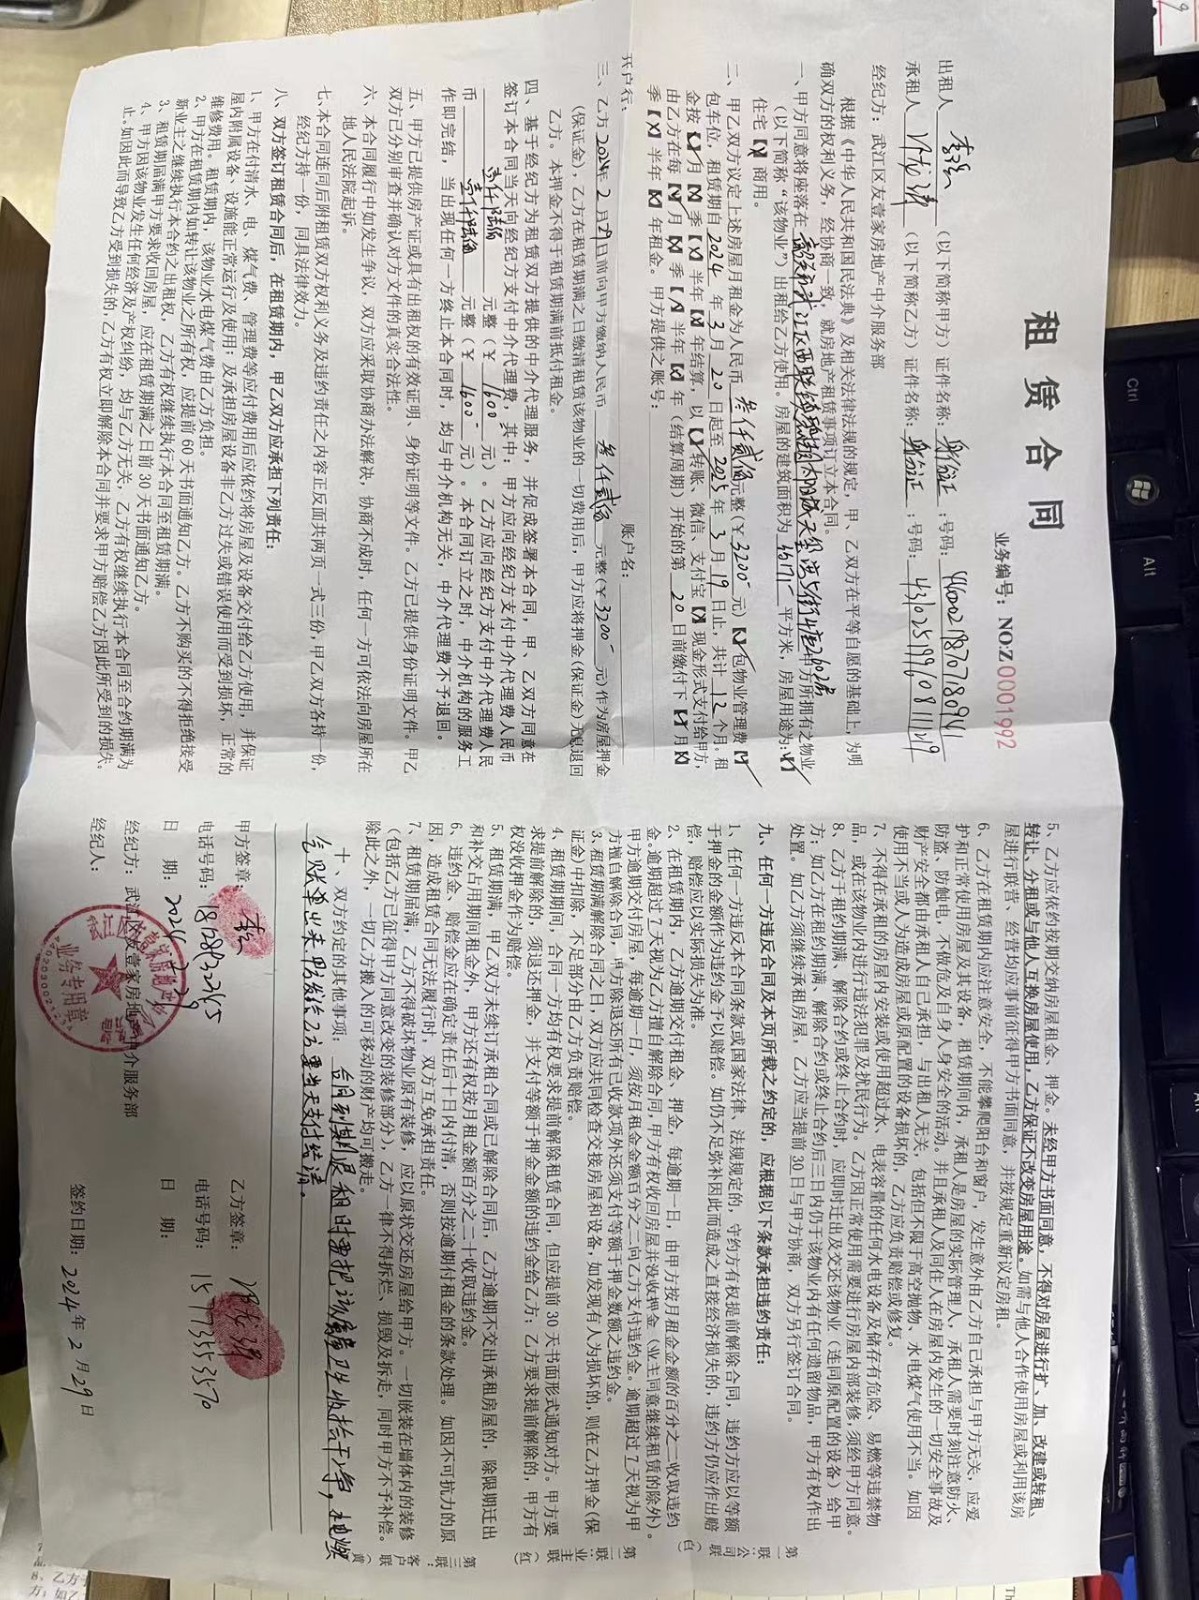 租赁合同
业务编号：NO.Z0001992
出租人（以下简称甲方）证件名称：身份证：号码：
承租人（以下简称乙方）证件名称：身份证：号码：
经纪方：武江区友壹家房地产中介服务部
根据《中华人民共和国民法典》及相关法律法规的规定，甲、乙双方在平等自愿的基础上，为明
确双方的权利义务，经协商一致，就房地产租赁事项订立本合同。
一、甲方同意将座落在 甲方所拥有之物业
（以下简称“该物业”）出租给乙方使用。房屋的建筑面积为 平方米，房屋用途为：
住宅 商用。
二、甲乙双方议定上述房屋月租金为人民币 叁仟贰佰 元整（￥3200 元） 包物业管理费
包车位，租赁期自 2024 年 3 月 20 日起至 2025 年 3 月 19 日止，共计 12 个月。租
金按 月 季 半年 年结算，以 转账、微信、支付宝 现金形式支付给甲方，
由乙方在每 月 季 半年 年（结算周期）开始的第 20 日前缴付下 月
季 半年 年租金。甲方提供之账号：
开户行： 账户名：
三、乙方 2024年 2 月 29 日前向甲方缴纳人民币 叁仟贰佰 元整（￥3200 元）作为房屋押金
（保证金），乙方在租赁期满之日缴清租赁该物业的一切费用后，甲方应将押金（保证金）无息退回
乙方。本押金不得于租赁期满前抵付租金。
四、基于经纪方为租赁双方提供的中介代理服务，并促成签署本合同，甲、乙双方同意在
签订本合同当天向经纪方支付中介代理费，其中：甲方应向经纪方支付中介代理费人民币
壹仟陆佰 元整（￥1600 元）。乙方应向经纪方支付中介代理费人民
币 壹仟陆佰 元整（￥1600 元）。本合同订立之时，中介机构的服务工
作即完结，当出现任何一方终止本合同时，均与中介机构无关，中介代理费不予退回。
五、甲方已提供房产证或具有出租权的有效证明、身份证明等文件。乙方已提供身份证明文件。甲乙
双方已分别审查并确认对方文件的真实合法性。
六、本合同履行中如发生争议，双方应采取协商办法解决，协商不成时，任何一方可依法向房屋所在
地人民法院起诉。
七、本合同连同后附租赁双方权利义务及违约责任之内容正反面共两页一式三份，甲乙双方各持一份，
经纪方持一份，同具法律效力。
八、双方签订租赁合同后，在租赁期内，甲乙双方应承担下列责任：
1、甲方在付清水、电、煤气费、管理费等应付费用后应依约将房屋及设备交付给乙方使用，并保证
屋内附属设备、设施能正常运行及使用；及承担房屋设备非乙方过失或错误使用而受到损坏，正常的
维修费用。租赁期内，该物业水电煤气费由乙方负担。
2、甲方在租赁期内如转让该物业之所有权，应提前 60 天书面通知乙方。乙方不购买的不得拒绝接受
新业主之继续执行本合约之出租权，乙方有权继续执行本合同至租赁期满。
3、租赁期届满甲方要求收回房屋，应在租赁期满之日前 30 天书面通知乙方。
4、甲方因该物业发生任何经济及产权纠纷，均与乙方无关，乙方有权继续执行本合同至合约期满为
止。如因此而导致乙方受到损失的，乙方有权立即解除本合同并要求甲方赔偿乙方因此所受到的损失。
5、乙方应依约按期交纳房屋租金、押金。未经甲方书面同意，不得对房屋进行扩、加、改建或转租、
转让、分租或与他人互换房屋使用，乙方保证不改变房屋用途。如需与他人合作使用房屋或利用该房
屋进行联营、经营均应事前征得甲方书面同意，并按规定重新议定房租。
6、乙方在租赁期内应注意安全，不能攀爬阳台和窗户，发生意外由乙方自己承担与甲方无关，应爱
护和正常使用房屋及其设备，租赁期间内，承租人是房屋的实际管理人，承租人需要时刻注意防火、
防盗、防触电，不做危及自身人身安全的活动。并且承租人及同住人在房屋内发生的一切安全事故及
财产安全都由承租人自己承担，与出租人无关，包括但不限于高空抛物、水电煤气使用不当。如因
使用不当或人为造成房屋或原配置的设备损坏的，乙方应负责赔偿或修复。
7、不得在承租的房屋内安装或使用超过水、电表容量的任何水电设备及储存有危险、易燃等违禁物
品，或在该物业内进行违法犯罪及扰民行为。乙方因正常使用需要进行房屋内部装修，须经甲方同意。
8、乙方于租约期满、解除合约或终止合约时，应即时迁出及交还该物业（连同原配置的设备）给甲
方；如乙方在租约期满、解除合约或终止合约后三日内仍于该物业内有任何遗留物品，甲方有权作出
处置。如乙方须继续承租房屋，乙方应当提前 30 日与甲方协商，双方另行签订合同。
九、任何一方违反合同及本页所载之约定的，应根据以下条款承担违约责任：
1、任何一方违反本合同条款或国家法律、法规规定的，守约方有权提前解除合同，违约方应以等额
于押金的金额作为违约金予以赔偿。如仍不足弥补因此而造成之直接经济损失的，违约方仍应作出赔
偿，赔偿应以实际损失为准。
2、在租赁期内，乙方逾期交付租金、押金，每逾期一日，由甲方按月租金金额的百分之二收取违约
金。逾期超过 7 天视为乙方擅自解除合同，甲方有权收回房屋并没收押金（业主同意继续租赁的除外）。
甲方逾期交付房屋，每逾期一日，须按月租金金额百分之二向乙方支付违约金。逾期超过 7 天视为甲
方擅自解除合同，甲方除退还所有已收款项外还须支付等额于押金数额之违约金。
3、租赁期满解除合同之日，双方应共同检查交接房屋和设备，如发现有人为损坏的，则在乙方押金（保
证金）中扣除，不足部分由乙方负责赔偿。
4、租赁期间，合同一方均有权要求提前解除租赁合同，但应提前 30 天书面形式通知对方。甲方要
求提前解除的，须退还押金，并支付等额于押金金额的违约金给乙方；乙方要求提前解除的，甲方有
权没收押金作为赔偿。
5、租赁期满，甲乙双方未续订承租合同或已解除合同后，乙方逾期不交出承租房屋的，除限期迁出
和补交占用期间租金外，甲方还有权按月租金额百分之二十收取违约金。
6、违约金、赔偿金应在确定责任后十日内付清，否则按逾期付租金的条款处理。如因不可抗力的原
因，造成租赁合同无法履行时，双方互免承担责任。
7、租赁期届满，乙方不得破坏物业原有装修，应以原状交还房屋给甲方。一切嵌装在墙体内的装修
（包括乙方已征得甲方同意改变的装修部分），乙方一律不得拆烂、损毁及拆走，同时甲方不予补偿。
除此之外，一切乙方搬入的可移动的财产均可搬走。
十、双方约定的其他事项：合同到期退租时要把该房屋卫生收拾干净，
气账单出来甲方发给乙方要当天支付结清。
甲方签章： 乙方签章：
电话号码： 电话号码：15773353570
日 期： 日 期：
经纪方：武江区友壹家房地产中介服务部
经纪人： 签约日期：2024年 2 月 29 日
业务专用章
第一联：公司联（白）
第二联：业主联（红）
第三联：客户联（黄